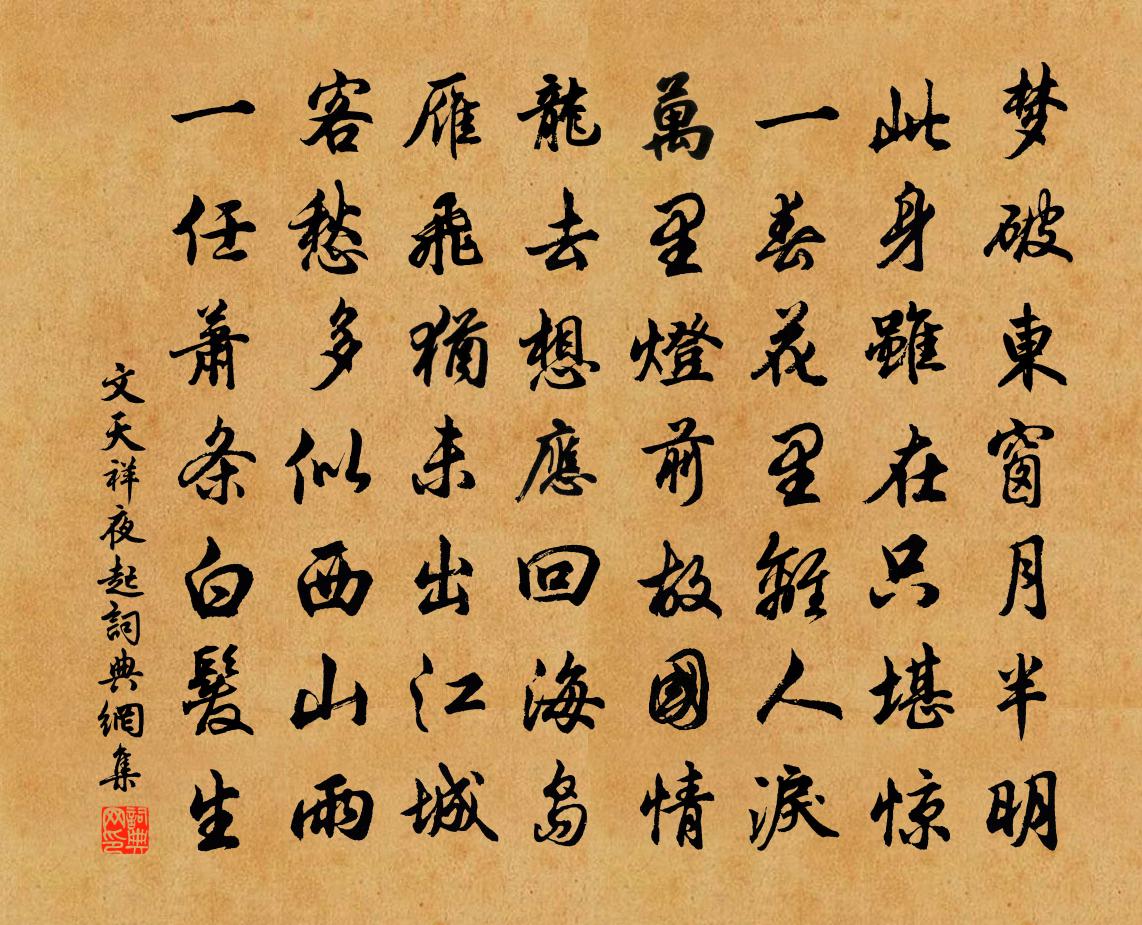 梦破東窗月半明
此身雖在只堪惊
一春花里離人淚
萬里燈前故國情
龍去想應回海島
雁飛猶未出江城
客愁多似西山雨
一任萧条白髮生
文天祥夜起詞典網集
詞典網印